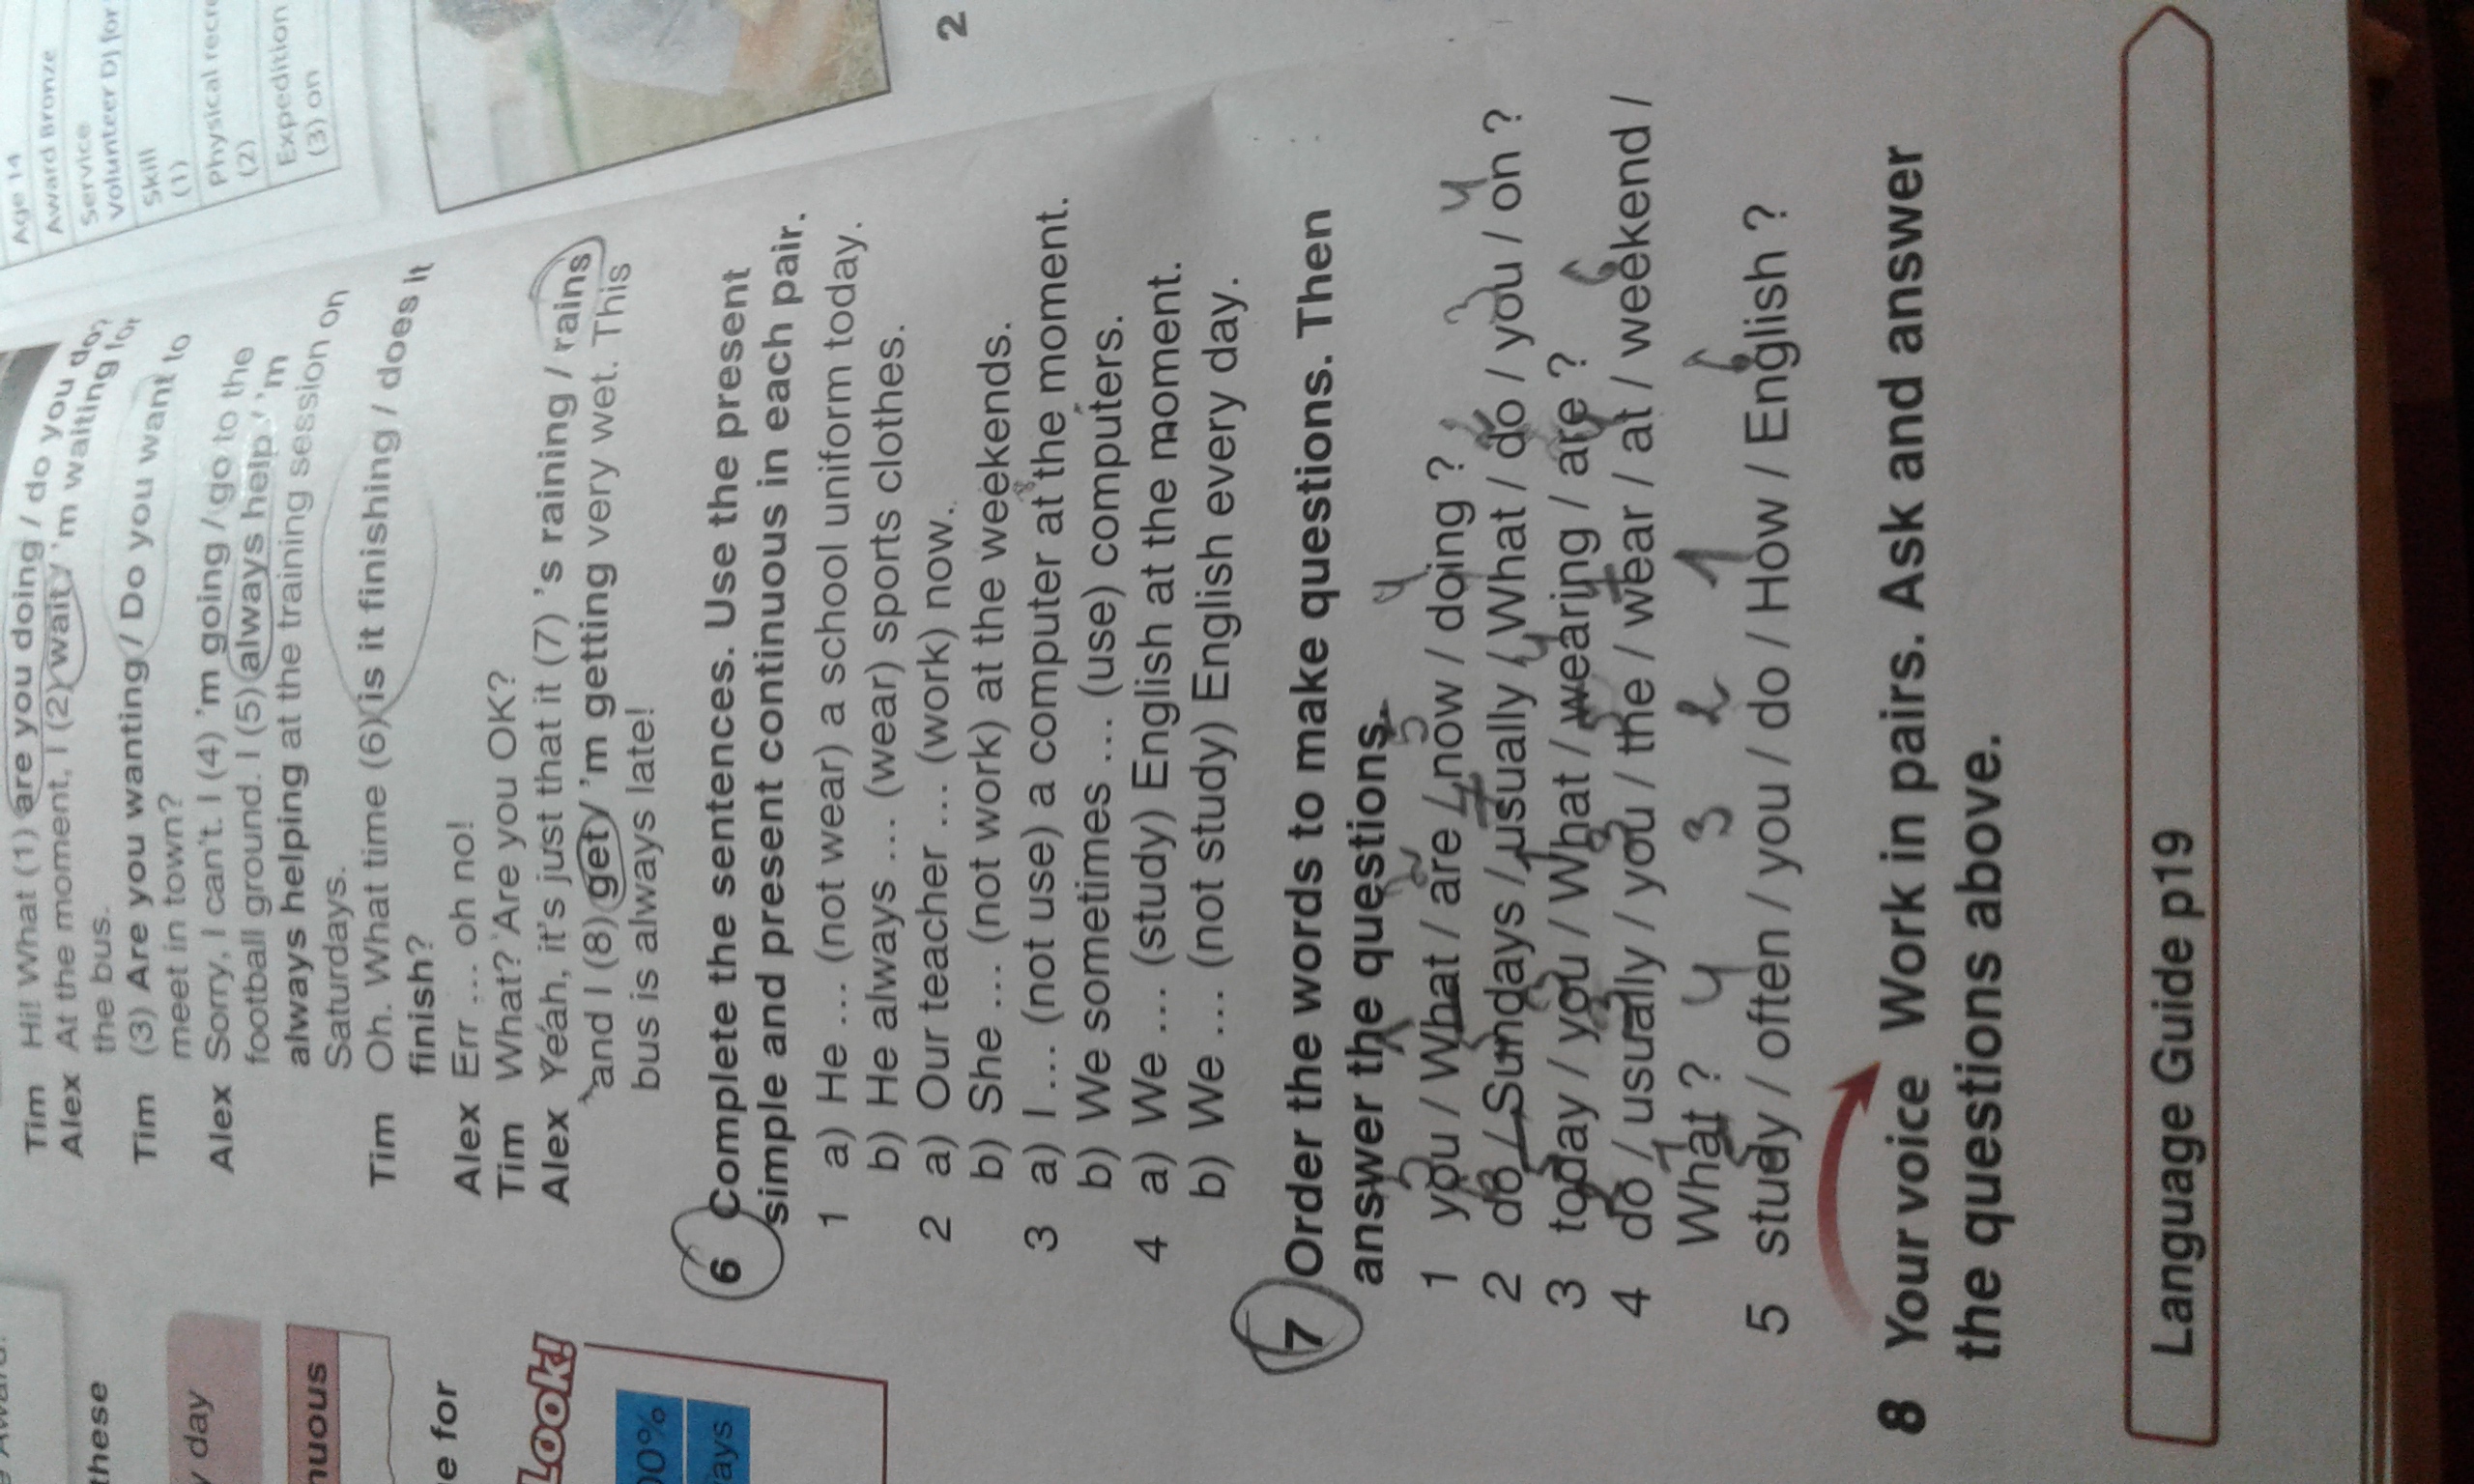 Age 14
Award Bronze
Service
Volunteer DJ for
Skill
(1)
Physical recre
(2)
Expedition
(3) on
2
these
y day
nuous
e for
Look!
00%
ays
Tim Hi! What (1) are you doing / do you do?
Alex At the moment, I (2) wait / 'm waiting for
the bus.
Tim (3) Are you wanting / Do you want to
meet in town?
Alex Sorry, I can't. I (4) 'm going / go to the
football ground. I (5) always help / 'm
always helping at the training session on
Saturdays.
Tim Oh. What time (6) is it finishing / does it
finish?
Alex Err ... oh no!
Tim What? Are you OK?
Alex Yeah, it's just that it (7) 's raining / rains
and I (8) get / 'm getting very wet. This
bus is always late!
6 Complete the sentences. Use the present
simple and present continuous in each pair.
1 a) He ... (not wear) a school uniform today.
b) He always ... (wear) sports clothes.
2 a) Our teacher ... (work) now.
b) She ... (not work) at the weekends.
3 a) I ... (not use) a computer at the moment.
b) We sometimes ... (use) computers.
4 a) We ... (study) English at the moment.
b) We ... (not study) English every day.
7 Order the words to make questions. Then
answer the questions.
1 you / What / are / now / doing ?
2 do / Sundays / usually / What / do / you / on ?
3 today / you / What / wearing / are ?
4 do / usually / you / the / wear / at / weekend /
What ?
4 3 2 1
5 study / often / you / do / How / English ?
8 Your voice Work in pairs. Ask and answer
the questions above.
Language Guide p19